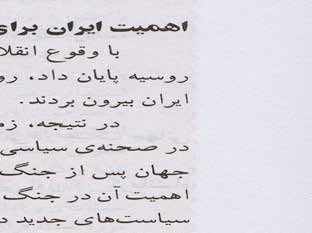 اهمیت ایران برای
با وقوع انقلا
روسیه پایان داد، رو
ایران بیرون بردند.
در نتیجه، زم
در صحنه‌ی سیاسی
جهان پس از جنگ
اهمیت آن در جنگ
سیاست‌های جدید د